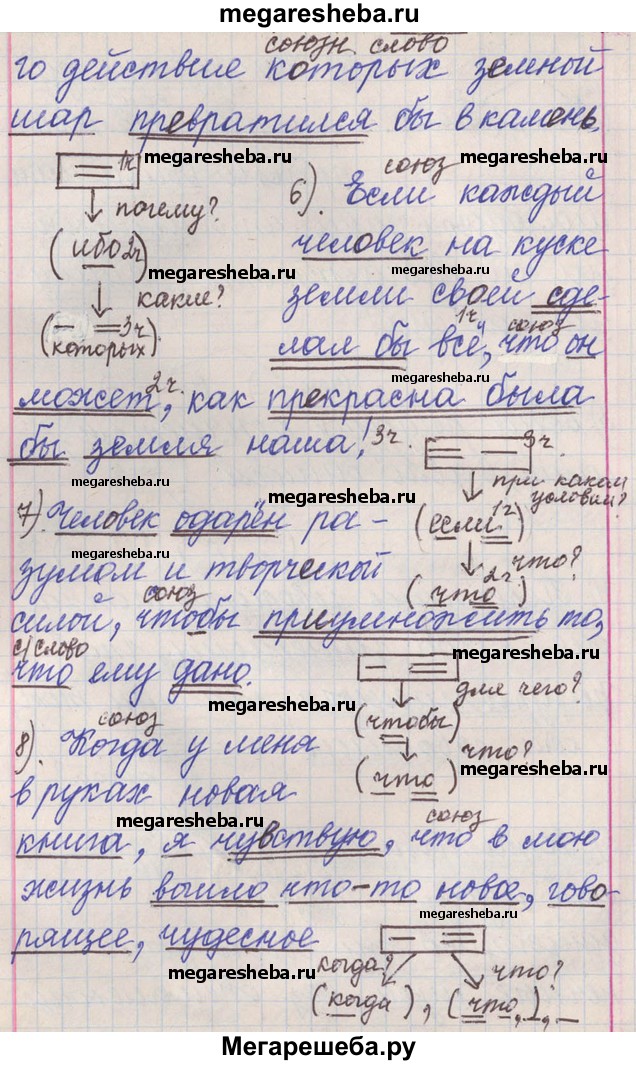 megaresheba.ru
союзн слово
го действие которых земной
шар превратился бы в камень.
megaresheba.ru
megaresheba.ru
1ч
почему?
(ибо 2ч)
какие?
(которых 3ч).
союз
6). Если каждый
megaresheba.ru
человек на куске
megaresheba.ru
megaresheba.ru
земли своей сде-
1ч союз
лал бы всё, что он
megaresheba.ru
2ч.
может, как прекрасна была
бы земля наша! 3ч.
megaresheba.ru
3ч.
при каком
условии?
(если 1ч)
что?
(что 2ч)
7). Человек одарён ра-
megaresheba.ru
megaresheba.ru
зумом и творческой
союз
силой, чтобы приумножить то,
с/слово
megaresheba.ru
что ему дано.
megaresheba.ru
для чего?
(чтобы)
что?
(что)
megaresheba.ru
союз
8). Когда у меня
в руках новая
megaresheba.ru
союз
книга, я чувствую, что в мою
megaresheba.ru
жизнь вошло что-то новое, гово-
megaresheba.ru
рящее, чудесное
megaresheba.ru
когда? что?
(когда), (что
megaresheba.ru
Мегарешеба.ру